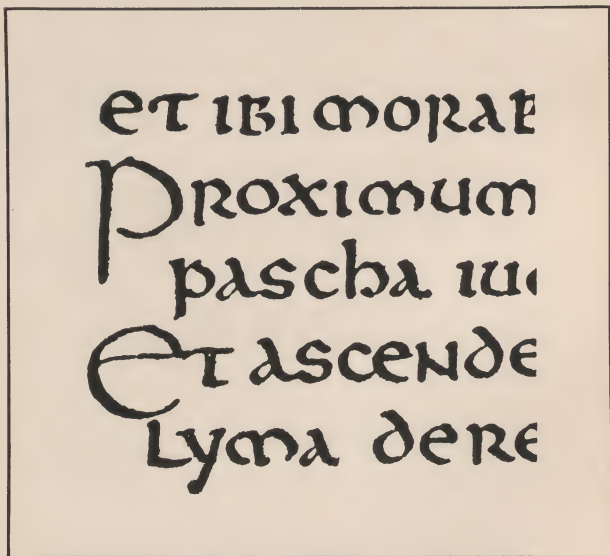 et ibi morab
Proximum
pascha iu
Et ascende
Lyma dere